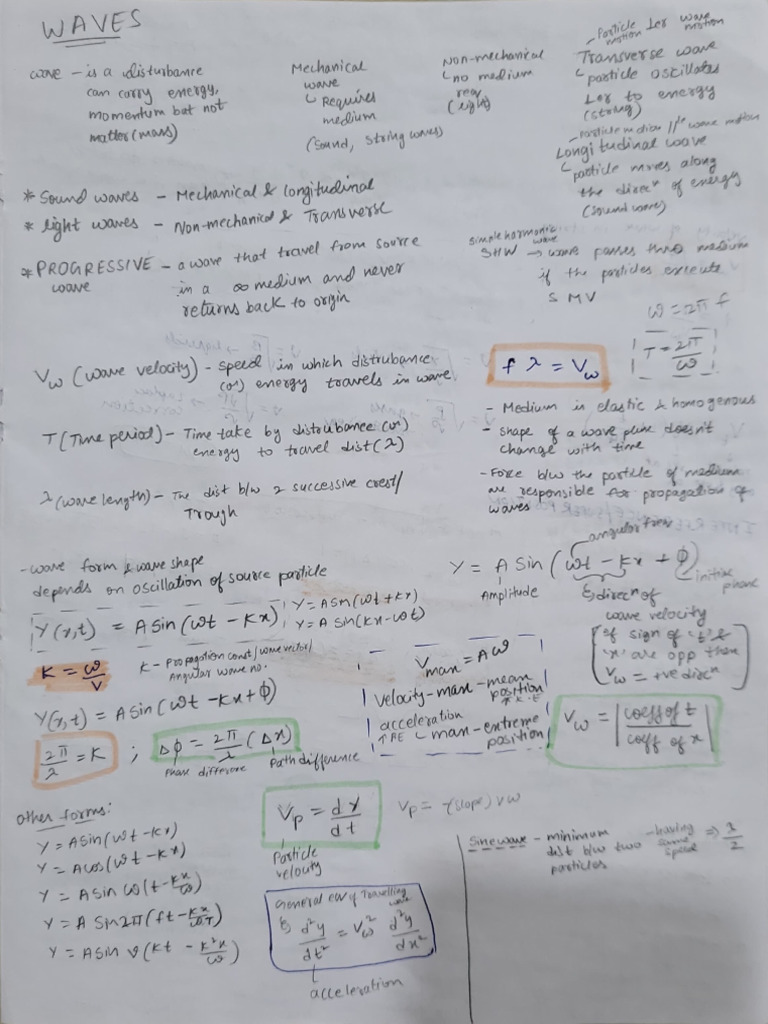 WAVES
wave - is a disturbance
can carry energy,
momentum but not
matter (mass)
Mechanical
wave
↳ Requires
medium
(Sound, String waves)
Non-mechanical
↳ no medium
req
(light)
- Particle ⊥er wave
motion motion
Transverse wave
↳ particle oscillates
⊥er to energy
(string)
- Particle motion ||le wave motion
Longitudinal wave
↳ particle moves along
the direcⁿ of energy
(sound wave)
* Sound waves - Mechanical & Longitudinal
* light waves - Non-mechanical & Transverse
* PROGRESSIVE - a wave that travel from source
wave
in a ∞ medium and never
returns back to origin
simple harmonic
wave
SHW → wave passes thro medium
if the particles execute
ω = 2πf
T = 2π/ω
Vw (wave velocity) - Speed in which distrubance
(or) energy travels in wave
fλ = Vw
T (Time period) - Time take by distrubance (or)
energy to travel dist (λ)
λ (wave length) - The dist b/w 2 successive crest/
Trough
- Medium is elastic & homogenous
- shape of a wave doesn't
change with time
- Force b/w the particle of medium
are responsible for propagation of
waves
- wave form & wave shape
depends on oscillation of source particle
angular freq
Y = A Sin (ωt - Kx + ϕ)
Amplitude
initial
phase
↳ direcⁿ of
wave velocity
[if sign of 't' &
'x' are opp then
Vw = +ve direcⁿ]
Y(x,t) = A Sin (ωt - Kx)
Y = A Sin (ωt + Kx)
Y = A Sin (Kx - ωt)
K = ω/V
K - Propagation const/wave vector/
Angular wave no.
Y(x,t) = A Sin (ωt - Kx + ϕ)
Vmax = Aω
velocity - max - mean
position
↑ K.E
acceleration
↑ PE ↳ max - extreme
position
Vw = |coeff of t / coeff of x|
2π/λ = K ; Δϕ = 2π/λ (Δx)
Phase differene Path difference
other forms:
Y = A Sin (ωt - Kx)
Y = A cos (ωt - Kx)
Y = A Sin ω (t - Kx/ω)
Y = A Sin 2π (ft - Kx/
Y = A Sin v (Kt - K²x/ω)
Vp = dy/dt
Particle
velocity
Vp = -(slope) x Vw
General eqⁿ of Travelling
wave
↳ d²y/dt² = Vw² d²y/dx²
acceleration
Sine wave - minimum
dist b/w two
particles
- having
same
speed
⇒ λ/2